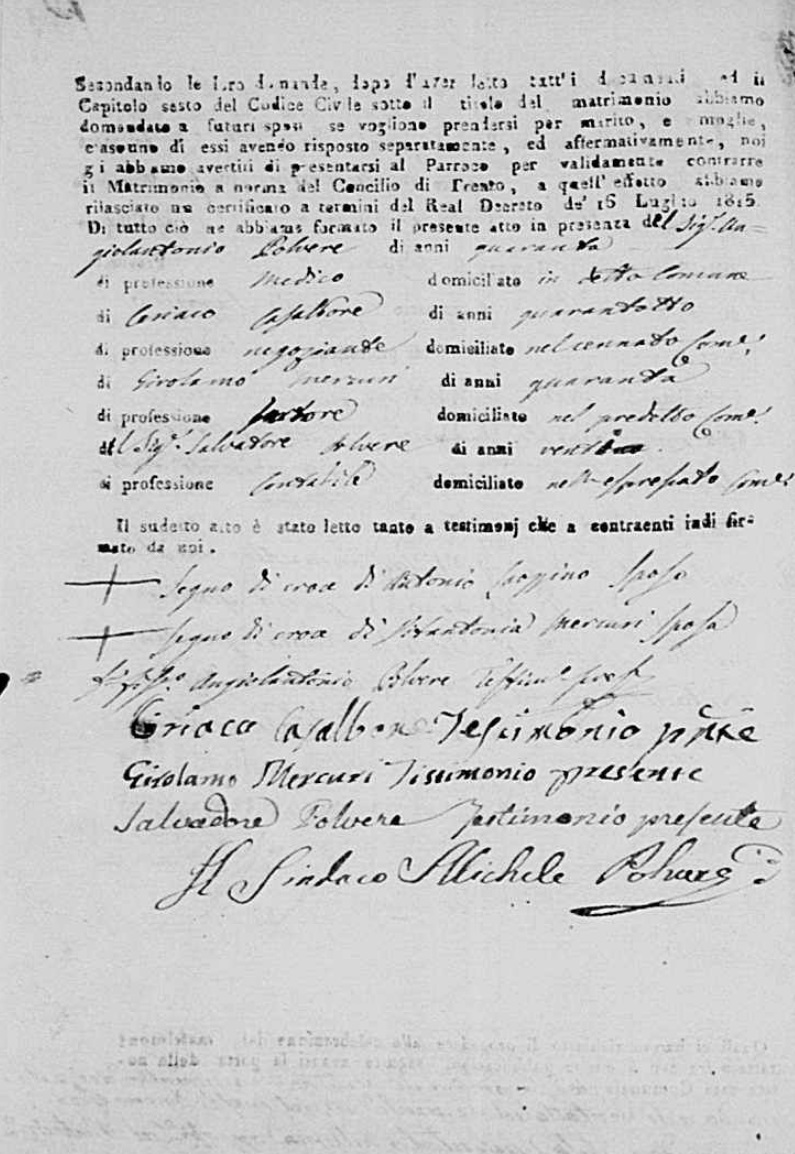 Secondando le loro domande, dopo d'aver letto tutt'i documenti ed il
Capitolo sesto del Codice Civile sotto il titolo del matrimonio abbiamo
domandato a futuri sposi se vogliono prendersi per marito, e moglie,
ciascuno di essi avendo risposto separatamente, ed affermativamente, noi
gi abbiamo avertiti di presentarsi al Parroco per validamente contrarre
il Matrimonio a norma del Concilio di Trento, a quell' effetto abbiamo
rilasciato un certificato a termini del Real Decreto de' 16 Luglio 1815.
Di tutto ciò ne abbiamo formato il presente atto in presenza del Sigr. An=
giolantonio Polvere di anni quaranta
di professione Medico domiciliato in detto Comune
di Ceriaco Casalbore di anni quarantotto
di professione negoziante domiciliato nel cennato Come.
di Girolamo Mercuri di anni quaranta
di professione sartore domiciliato nel predetto Come.
del Sigr. Salvadore Polvere di anni
di professione Contabile domiciliato Come.
Il sudetto atto è stato letto tanto a testimonj che a contraenti indi fir-
mato da noi.
Segno di croce di Antonio Sposo
Segno di croce di Mercuri Sposa
Angiolantonio Polvere
Ciriaco Casalbore Testimonio pnte
Girolamo Mercuri Tissimonio presente
Salvadore Polvere Testimonio presente
Il Sindaco Michele Polvere